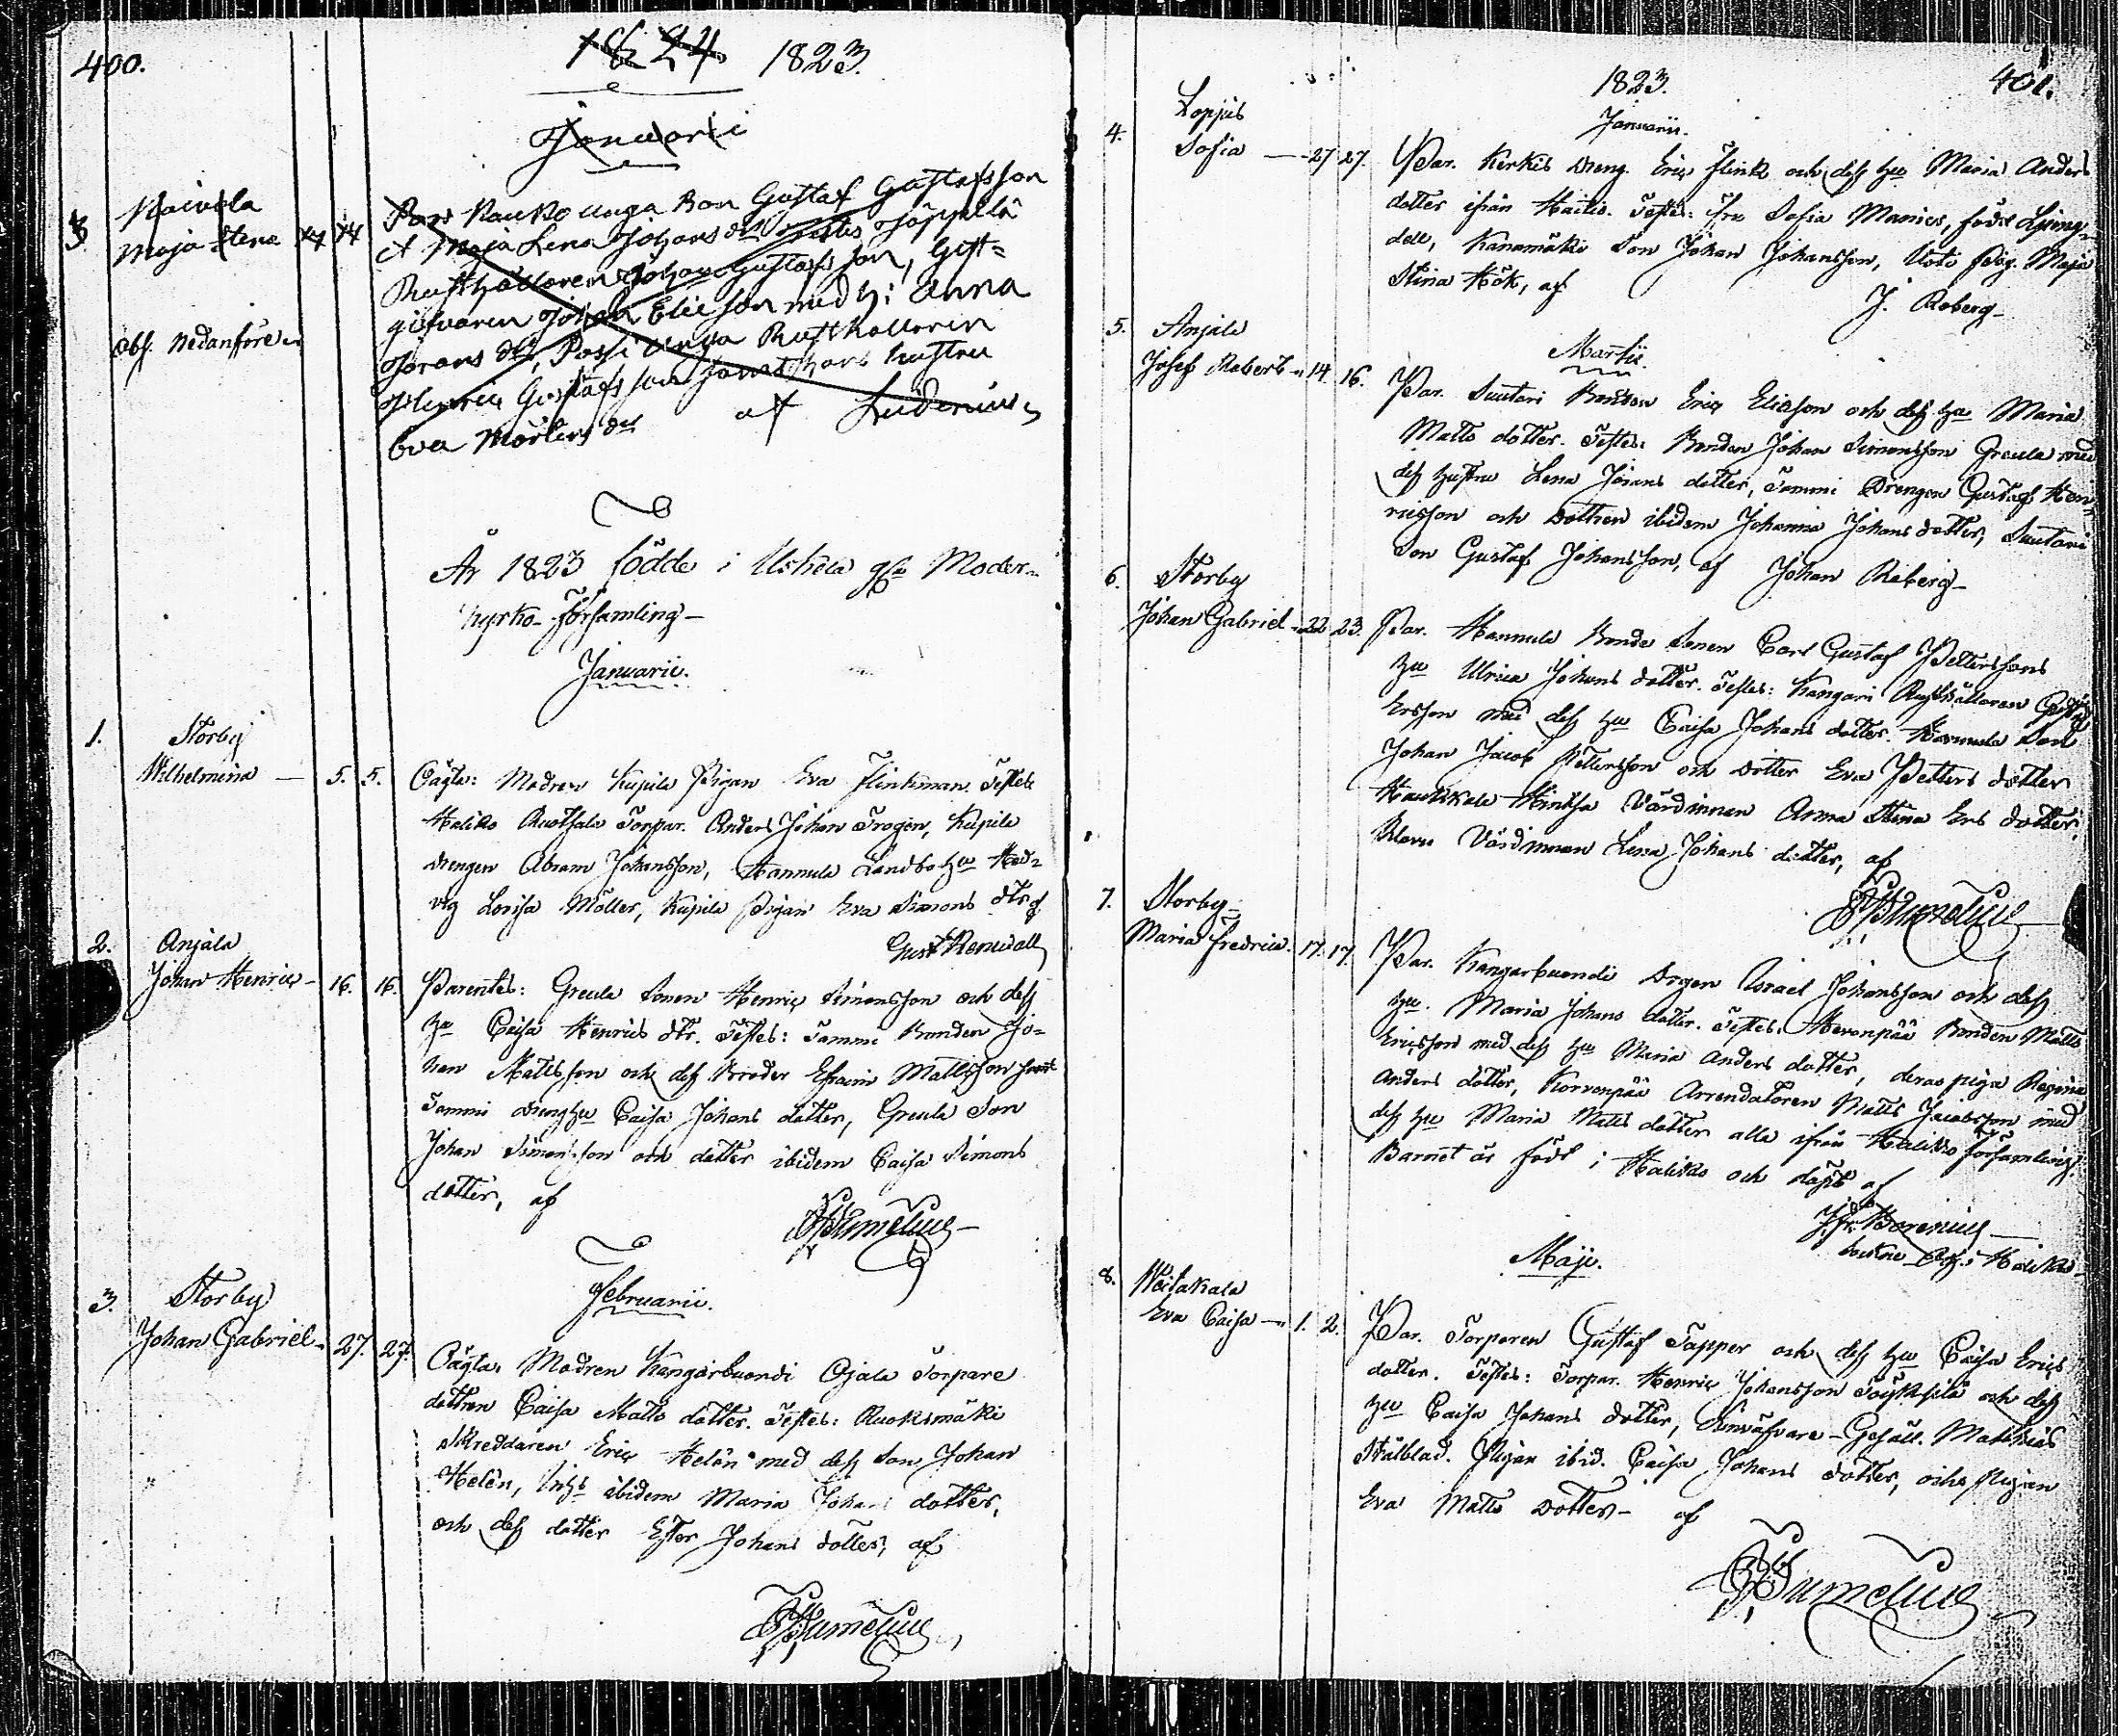 400.
1824 1823.
Januarii
Maja Stena 14 14
Par: Rauko unga Bon Gustaf Gustafsson
et Maja Lena Johans dr Testes
Rusthållaren Johan Gustafsson, Gäst=
gifvaren Johan Eliesson med h: Anna
Jörans dr, Possi unga Rusthållaren
Henric Gustafsson samt hans hustru
Eva Mårtens dr af Lidenius
obs. nedanföre
År 1823 födde i Uskela gla Moder-
kyrko-församling-
Januarii.
1. Storby
Wilhelmina — 5. 5.
Oägta: Modren Kupila Pigan Eva Flinkman. Testes
Haliko Rusthåls Torpar. Anders Johan Trogen, Kupila
drengen Abram Johansson, Hannula Landbo hu Hed=
vig Lovisa Möller, Kupila Pigan Eva Simons dtr af
Gust Renvall
2. Anjala
Johan Henric - 16. 16.
Parentes: Greula Sonen Henric Simonsson och dess
hu Caisa Henrics dtr. Testes: Tammi Bonden Jo=
han Mattsson och dess Broder Efraim Mattsson samt
Tammi dreng hu Caisa Johans dotter, Greula Son
Johan Simonsson och dotter ibidem Caisa Simons
dotter, af
Februarii.
3. Storby
Johan Gabriel - 27. 27.
Oägta: Modren Kangarbuondi Ojala Torpare
dottren Caisa Matts dotter. Testes: Ruoksmäki
Skreddaren Eric Helén med dess Son Johan
Helén, Inhs ibidem Maria Johans dotter,
och dess dotter Ester Johans dotter, af
1823. 401.
Januarii.
4. Lopjus
Sofia — 27 27.
Par. Kerkis dreng. Eric Flink och dess hu Maria Anders
dotter ifrån Haliko. Testes: Fru Sofia Manier, född Ljung=
dell, Kanamäki Son Johan Johansson, Uoti Pig. Maja
Stina Hök, af
J. Roberg-
Martii.
5. Anjala
Josef Robert - 14. 16.
Par. Suutari Bonden Eric Eliasson och dess hu Maria
Matts dotter. Testes: Bonden Johan Simonsson Greula med
dess hustru Lena Jörans dotter, Tammi Drengen Gustaf Hen=
ricsson och dottren ibidem Johanna Johans dotter, Suutari
Son Gustaf Johansson, af Johan Roberg-
6. Storby
Johan Gabriel - 22 23.
Par. Hannula Bonde Sonen Carl Gustaf Pettersons
hu Ulrica Johans dotter. Testes: Kangari Rusthållaren Gustaf
Ersson med dess hu Caisa Johans dotter. Hannula Son
Johan Jacob Pettersson och dotter Eva Petters dotter
Värdinnan Anna Stina Ers dotter,
Värdinnan Lena Johans dotter, af
7. Storby-
Maria Fredrica. 17. 17.
Par. Kangarbuondi Drgen Israel Johansson och dess
hu. Maria Johans dotter. Testes: Bonden Matts
Ericsson med dess hu Maria Anders dotter, deras piga Regina
Anders dotter, Korvenpää Arrendatoren Matts Jacobsson med
dess hu Maria Matts dotter alla ifrån Haliko församling.
Barnet är född i Haliko och döpt af
Maji.
8.
Eva Caisa — 1. 2.
Par. Torparen Gustaf Tapper och dess hu Caisa Erics
dotter. Testes: Torpar. Henric Johansson och dess
hu Caisa Johans dotter, Linväfvare-Gesäll. Matthias
Stålblad. Pigan ibid. Caisa Johans dotter, ochs Pigan
Eva Matts dotter- af